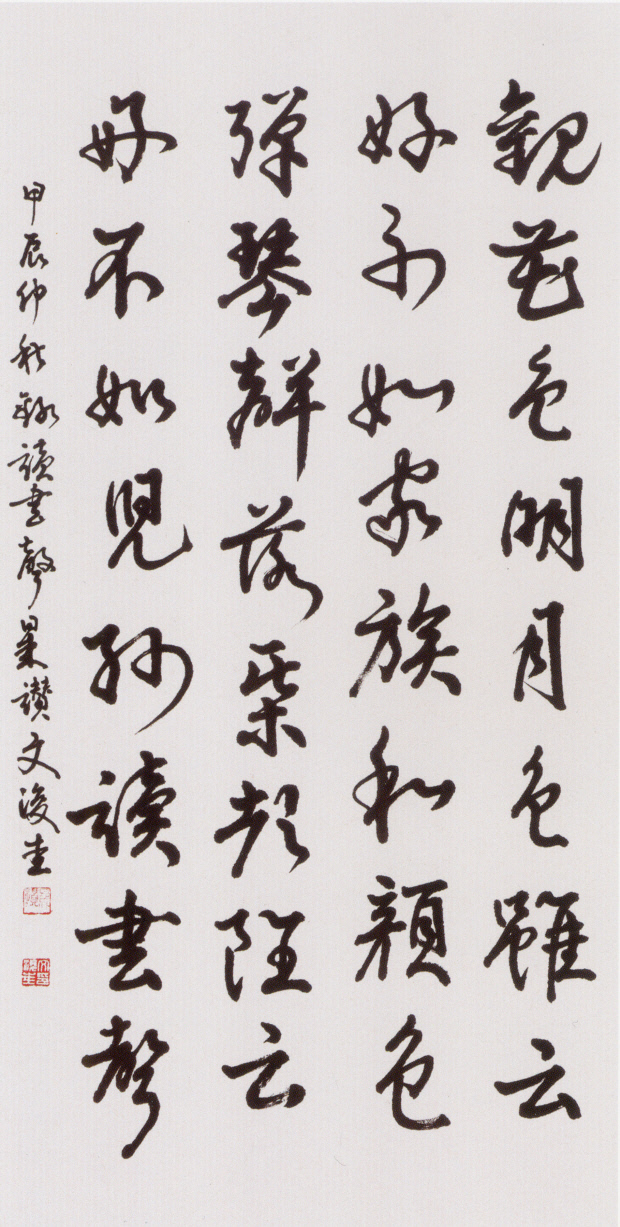 觀花色明月色雖云
好不如家族和顔色
彈琴聲落棊聲雖云
好不如兒孫讀書聲
甲辰仲秋錄讀書聲最讚文浚